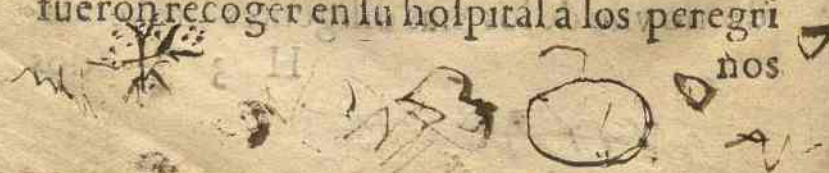 fueron recoger en su hospital a los peregri
nos